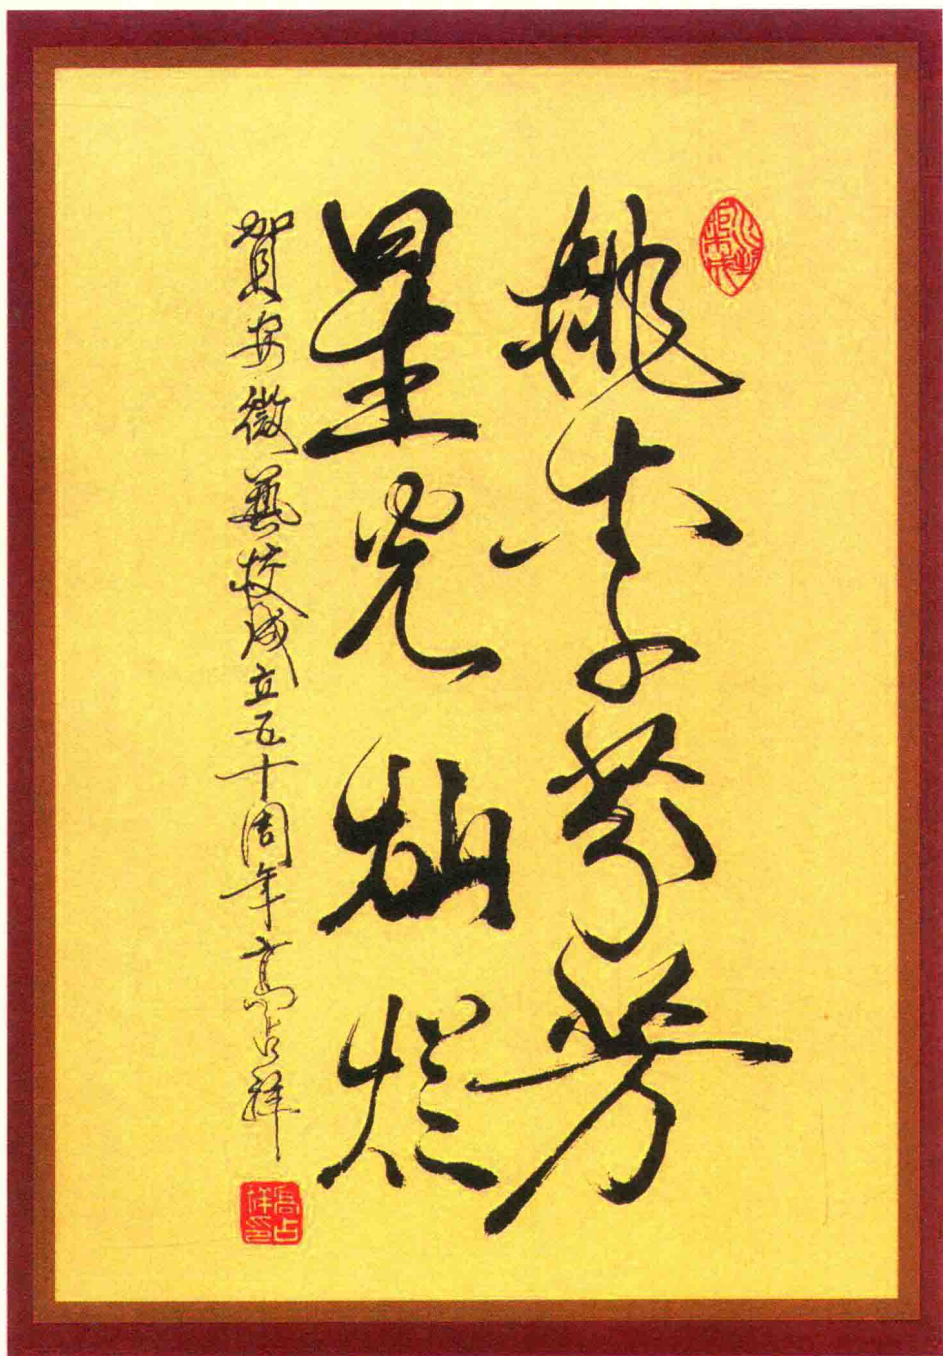 桃李芬芳
星光灿烂
賀安徽藝校成立五十周年 高占祥
高占祥印